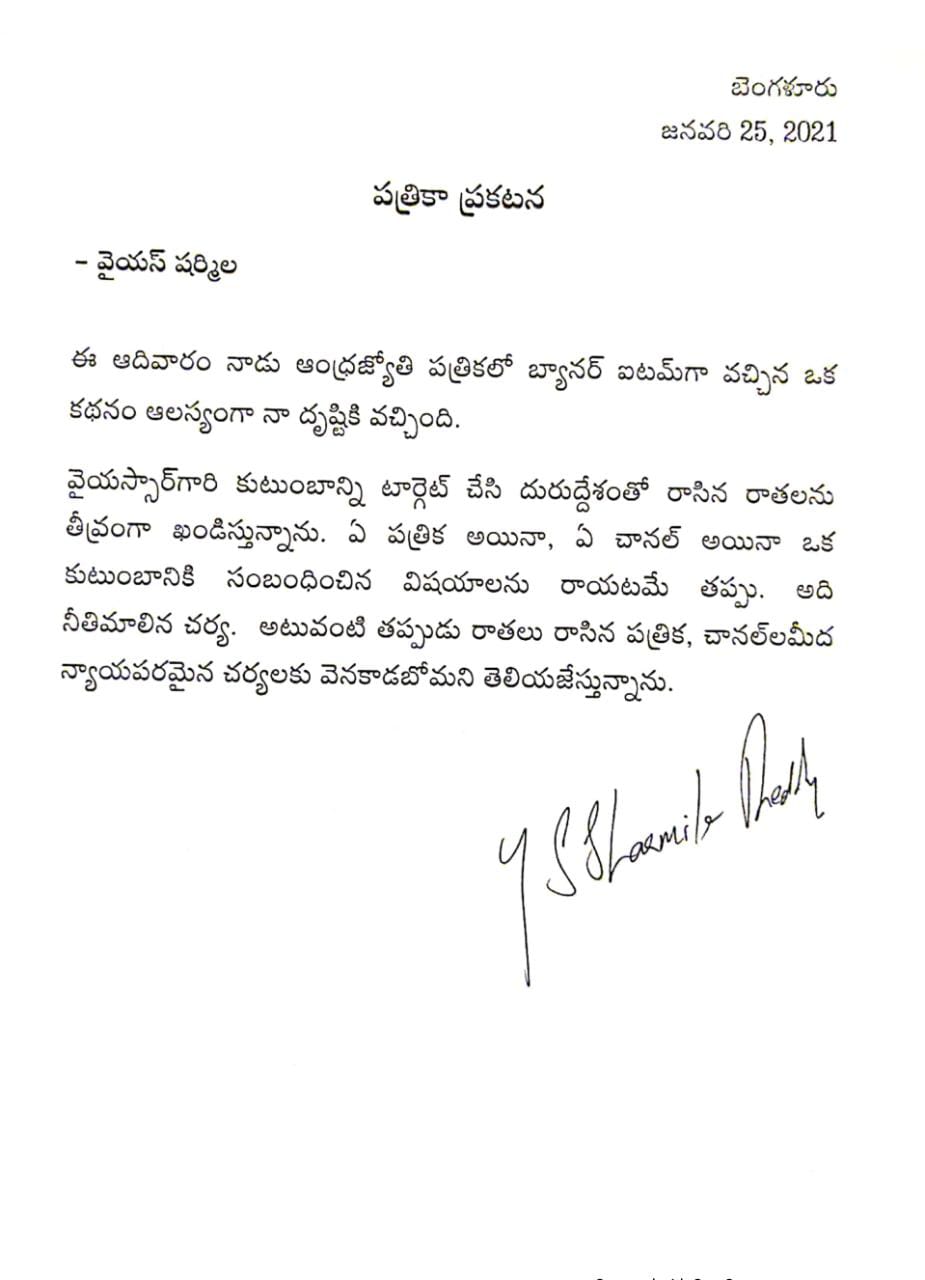 బెంగళూరు
జనవరి 25, 2021
పత్రికా ప్రకటన
– వైయస్ షర్మిల
ఈ ఆదివారం నాడు ఆంధ్రజ్యోతి పత్రికలో బ్యానర్ ఐటమ్‌గా వచ్చిన ఒక
కథనం ఆలస్యంగా నా దృష్టికి వచ్చింది.
వైయస్సార్‌గారి కుటుంబాన్ని టార్గెట్ చేసి దురుద్దేశంతో రాసిన రాతలను
తీవ్రంగా ఖండిస్తున్నాను. ఏ పత్రిక అయినా, ఏ చానల్ అయినా ఒక
కుటుంబానికి సంబంధించిన విషయాలను రాయటమే తప్పు. అది
నీతిమాలిన చర్య. అటువంటి తప్పుడు రాతలు రాసిన పత్రిక, చానల్‌లమీద
న్యాయపరమైన చర్యలకు వెనకాడబోమని తెలియజేస్తున్నాను.
Y S Sharmila Reddy